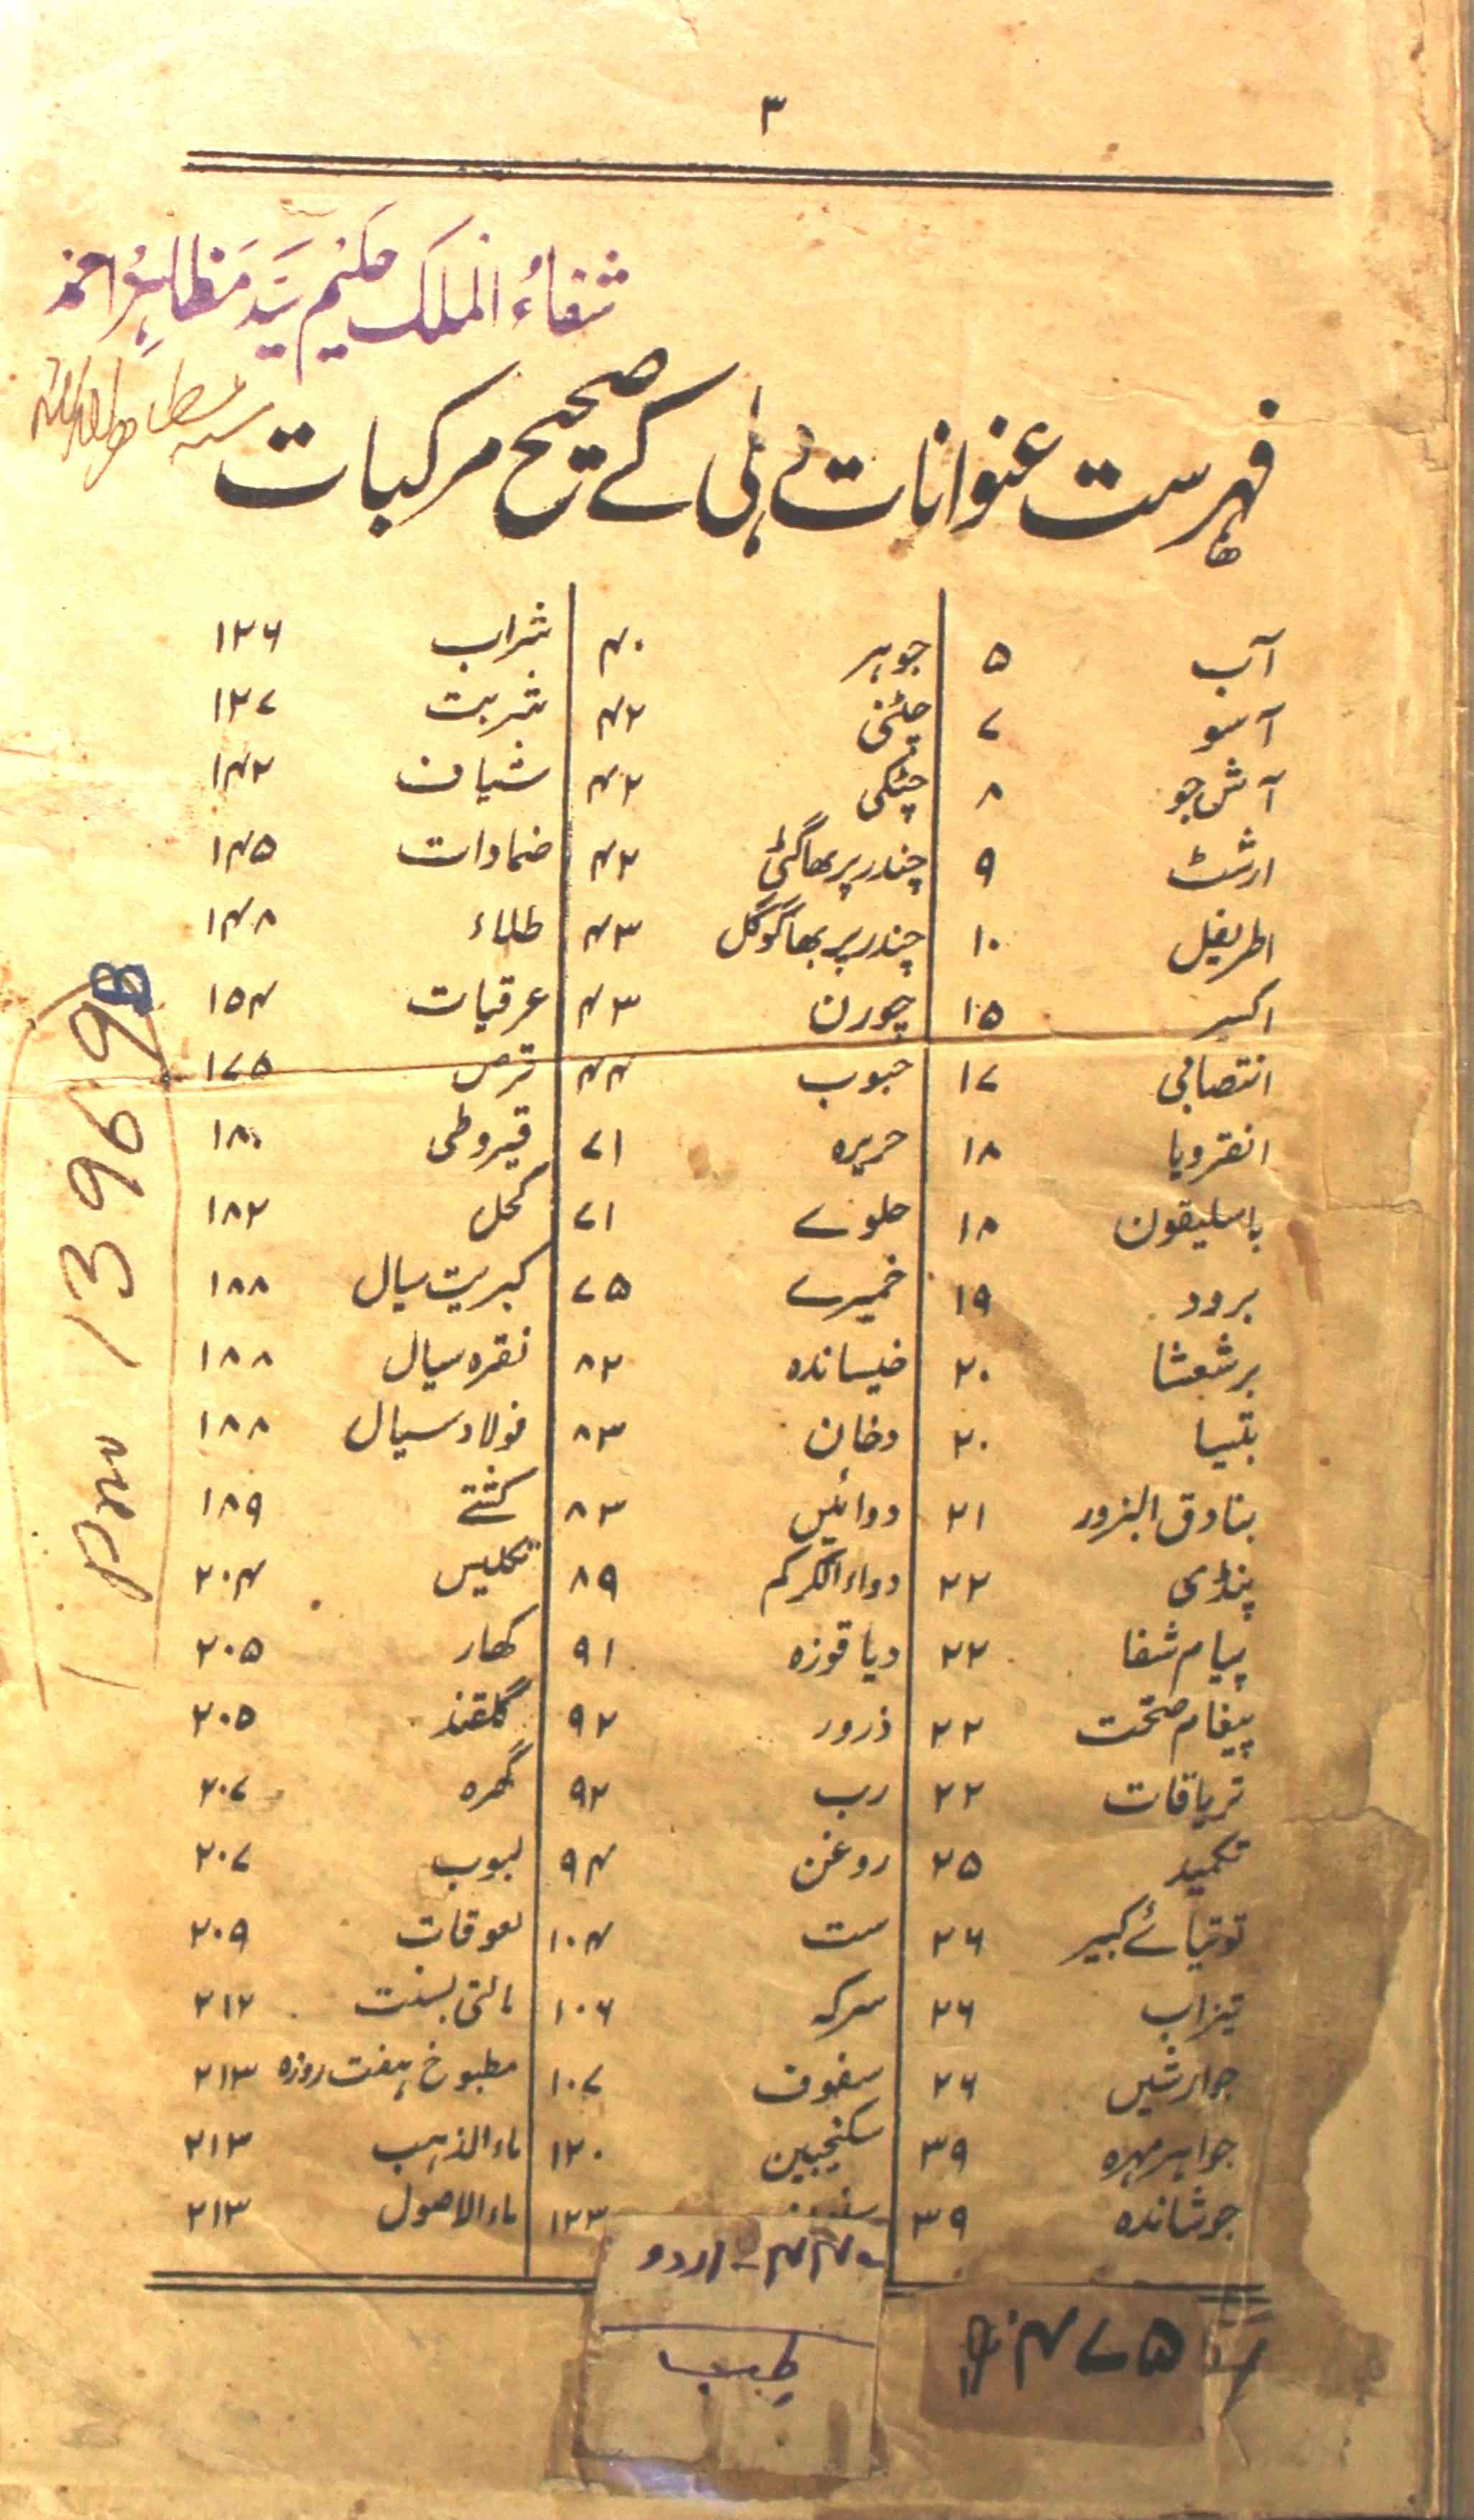 ۳
شفاءُ الملک حکیم سیّد مظاہر احمد
فہرست عنوانات دہلی کے صحیح مرکبات
آب ۵
آسو ۷
آش جو ۸
ارشٹ ۹
اطریفل ۱۰
اکسیر ۱۵
انتصابی ۱۷
انقرویا ۱۸
باسلیقون ۱۸
برود ۱۹
برشعشا ۲۰
بتیسا ۲۰
بنادق البزور ۲۱
پنڈی ۲۲
پیام شفا ۲۲
پیغام صحت ۲۲
تریاقات ۲۲
تکمید ۲۵
توتیائے کبیر ۲۶
تیزاب ۲۶
جوارشیں ۲۶
جواہر مہرہ ۳۹
جوشاندہ ۳۹
جوہر ۴۰
چٹنی ۴۲
چٹکی ۴۲
چندر پربھا گٹی ۴۲
چندر پربھا گوگل ۴۳
چورن ۴۳
حبوب ۴۴
حریرہ ۷۱
حلوے ۷۱
خمیرے ۷۵
خیساندہ ۸۲
دخان ۸۳
دوائیں ۸۳
دواء الکرکم ۸۹
دیاقوزہ ۹۱
ذرور ۹۲
رب ۹۲
روغن ۹۴
ست ۱۰۴
سرکہ ۱۰۶
سفوف ۱۰۷
سکنجبین ۱۲۰
۱۲۳
شراب ۱۲۶
شربت ۱۲۷
شیاف ۱۴۲
ضمادات ۱۴۵
طلاء ۱۴۸
عرقیات ۱۵۴
قرص ۱۷۵
قیروطی ۱۸۰
کحل ۱۸۲
کبریت سیال ۱۸۸
نقرہ سیال ۱۸۸
فولاد سیال ۱۸۸
کشتے ۱۸۹
تکلیس ۲۰۴
کھار ۲۰۵
گلقند ۲۰۵
گہرہ ۲۰۷
لبوب ۲۰۷
لعوقات ۲۰۹
مالتی بسنت ۲۱۲
مطبوخ ہفت روزہ ۲۱۳
ماء الذہب ۲۱۳
ماء الاصول ۲۱۳
13969
اردو
طب
۴۷۵